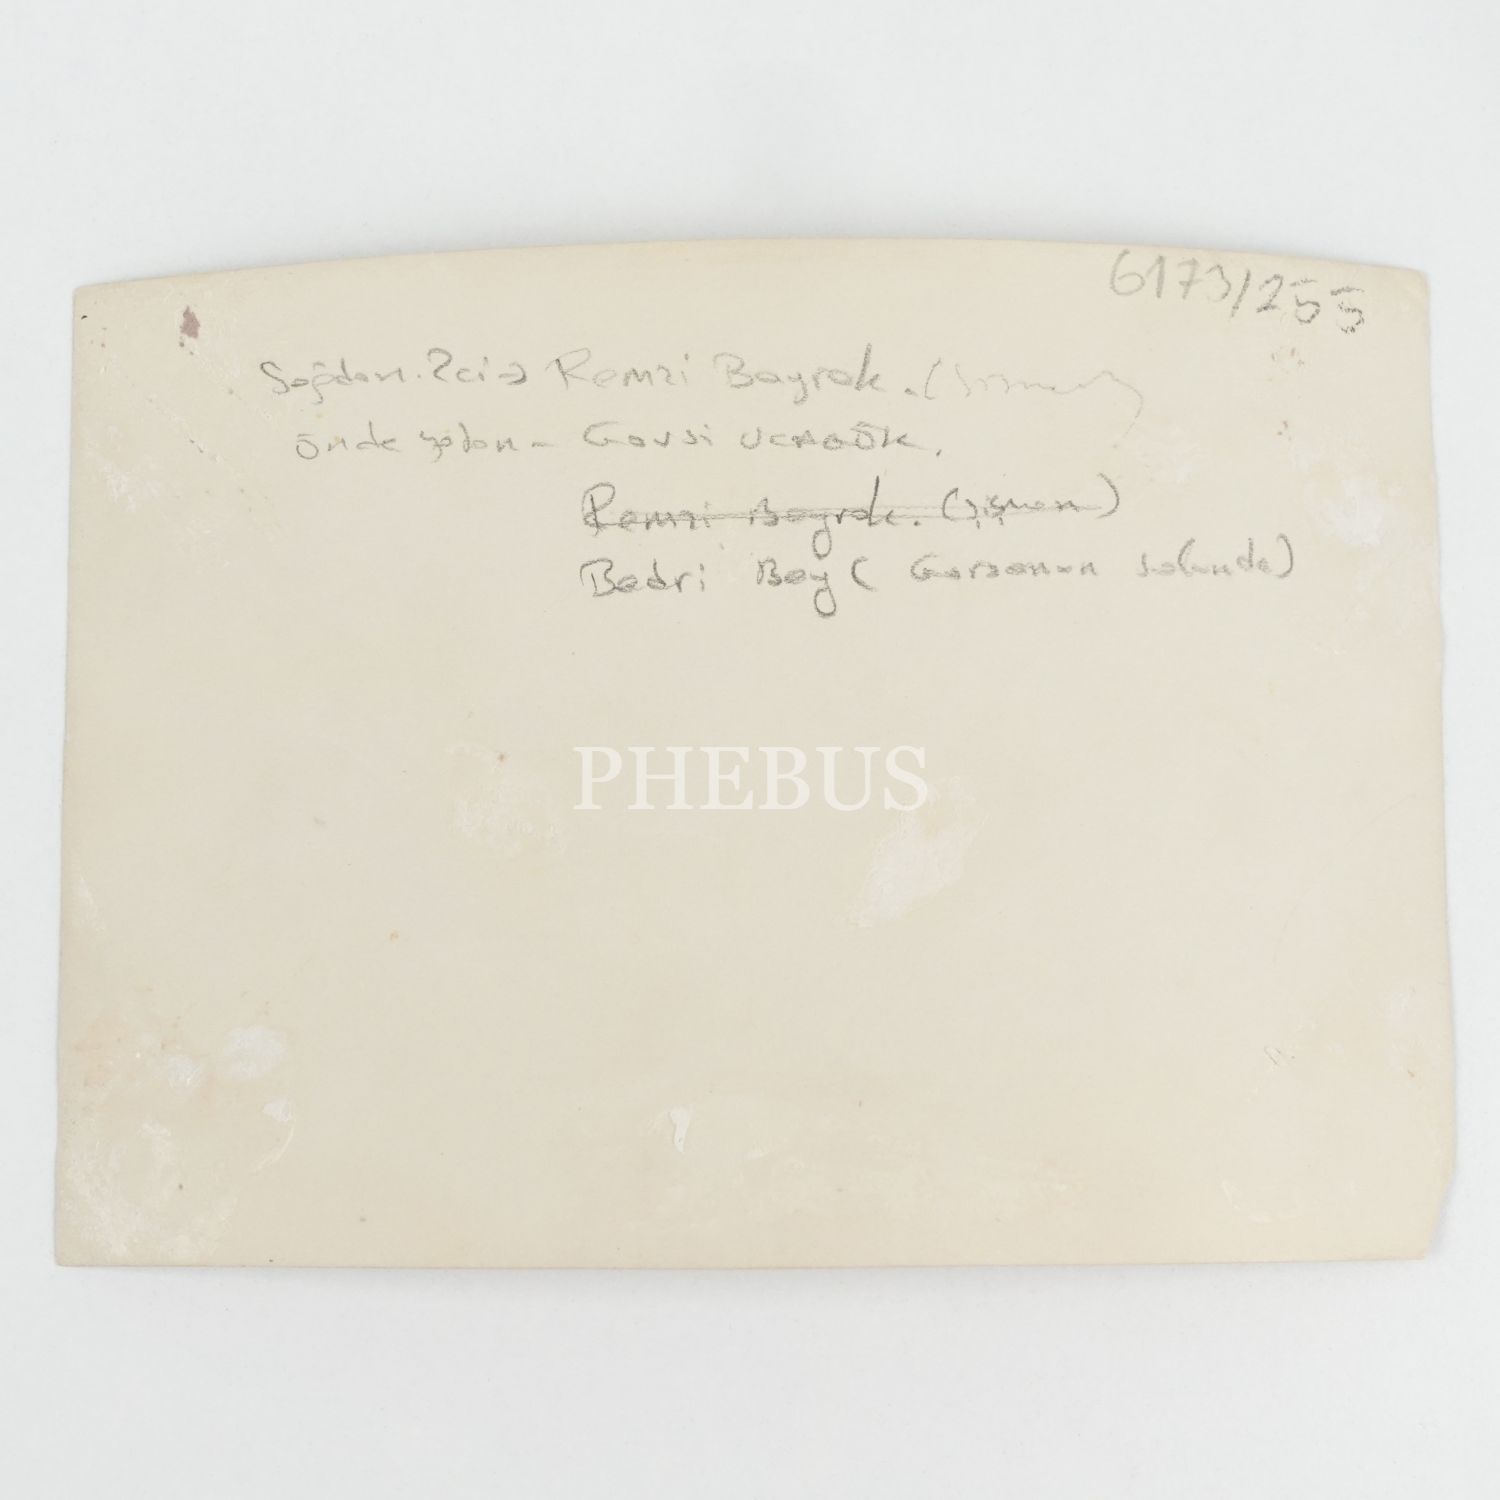 6173/255
Sağdan. 2ci → Remzi Bayrak. (şişman)
önde yatan - Gavsi UCAGÖK.
Remzi Bayrak. (şişman)
Bedri Bey ( Garsonun solunda)
PHEBUS